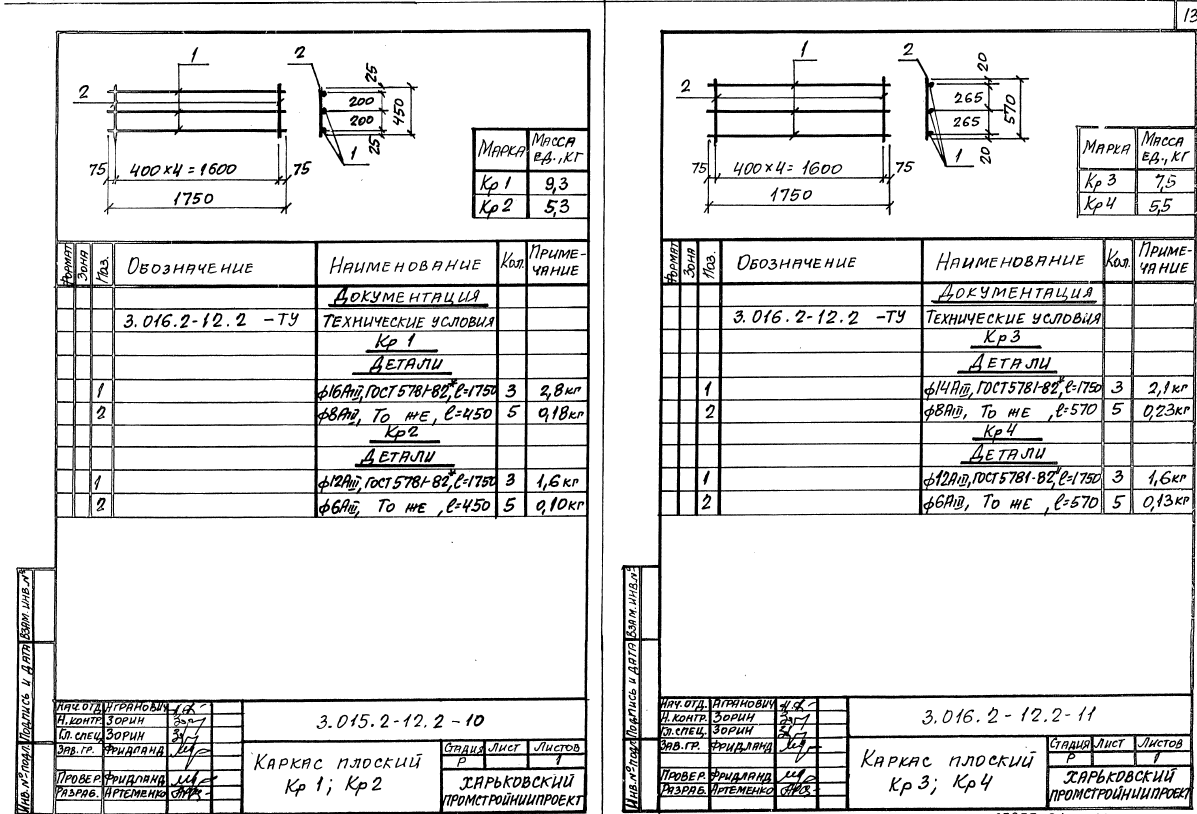 13
1
2
2
25
200
200
25
450
1
75
400×4=1600
75
1750
МАРКА МАССА ЕД., КГ
Кр 1 9,3
Кр 2 5,3
ФОРМАТ ЗОНА Поз. ОБОЗНАЧЕНИЕ НАИМЕНОВАНИЕ Кол. ПРИМЕ-ЧАНИЕ
ДОКУМЕНТАЦИЯ
3.016.2-12.2 -ТУ ТЕХНИЧЕСКИЕ УСЛОВИЯ
Кр 1
ДЕТАЛИ
1 ф16АIII, ГОСТ 5781-82*, ℓ=1750 3 2,8кг
2 ф8АIII, То же, ℓ=450 5 0,18кг
Кр2
ДЕТАЛИ
1 ф12АIII, ГОСТ 5781-82*, ℓ=1750 3 1,6кг
2 ф6АIII, То же, ℓ=450 5 0,10кг
ИНВ.№ПОДЛ. ПОДПИСЬ И ДАТА ВЗАМ.ИНВ.№
НАЧ.ОТД. АГРАНОВИЧ
Н.КОНТР. ЗОРИН
ГЛ.СПЕЦ. ЗОРИН
ЗАВ.ГР. ФРИДЛАНД
ПРОВЕР. ФРИДЛАНД
РАЗРАБ. АРТЕМЕНКО
3.015.2-12.2-10
КАРКАС ПЛОСКИЙ
Кр 1; Кр2
СТАДИЯ ЛИСТ ЛИСТОВ
Р 1
ХАРЬКОВСКИЙ
ПРОМСТРОЙНИИПРОЕКТ
1
2
2
20
265
265
20
570
1
75
400×4=1600
75
1750
МАРКА МАССА ЕД., КГ
Кр 3 7,5
Кр 4 5,5
ФОРМАТ ЗОНА Поз. ОБОЗНАЧЕНИЕ НАИМЕНОВАНИЕ Кол. ПРИМЕ-ЧАНИЕ
ДОКУМЕНТАЦИЯ
3.016.2-12.2 -ТУ ТЕХНИЧЕСКИЕ УСЛОВИЯ
Кр3
ДЕТАЛИ
1 ф14АIII, ГОСТ 5781-82*, ℓ=1750 3 2,1кг
2 ф8АIII, То же, ℓ=570 5 0,23кг
Кр4
ДЕТАЛИ
1 ф12АIII, ГОСТ 5781-82*, ℓ=1750 3 1,6кг
2 ф6АIII, То же, ℓ=570 5 0,13кг
ИНВ.№ПОДЛ. ПОДПИСЬ И ДАТА ВЗАМ.ИНВ.№
НАЧ.ОТД. АГРАНОВИЧ
Н.КОНТР. ЗОРИН
ГЛ.СПЕЦ. ЗОРИН
ЗАВ.ГР. ФРИДЛАНД
ПРОВЕР. ФРИДЛАНД
РАЗРАБ. АРТЕМЕНКО
3.016.2-12.2-11
КАРКАС ПЛОСКИЙ
Кр 3; Кр4
СТАДИЯ ЛИСТ ЛИСТОВ
Р 1
ХАРЬКОВСКИЙ
ПРОМСТРОЙНИИПРОЕКТ